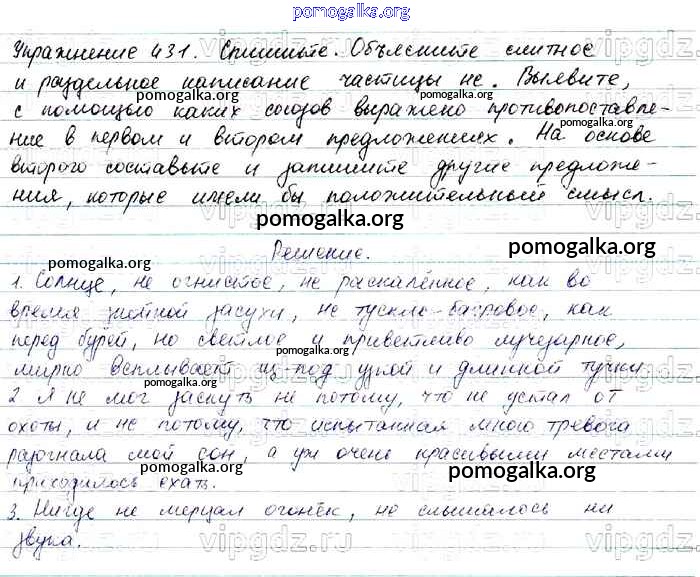 pomogalka.org
Упражнение 431. Спишите. Объясните слитное
и раздельное написание частицы не. Выпевите,
pomogalka.org
с помощью каких союзов выражено противопоставле-
ние в первом и втором предложениях. На основе
второго составьте и запишите другие предложе-
ния, которые имели бы положительный смысл.
pomogalka.org
Решение.
pomogalka.org
pomogalka.org
1. Солнце, не огнистое, не раскалённое, как во
время знойной засухи, не тускло-багровое, как
перед бурей, но светлое и приветливо лучезарное,
pomogalka.org
мирно всплывает из-под узкой и длинной тучки
pomogalka.org
2 Я не мог заснуть не потому, что не устал от
охоты, и не потому, что испытанная мною тревога
разогнала мой сон, а уж очень красивыми местами
pomogalka.org
pomogalka.org
приходилось ехать.
3. Нигде не мерцал огонёк, не слышалось ни
звука.
pomogalka.org
vipgdz.ru